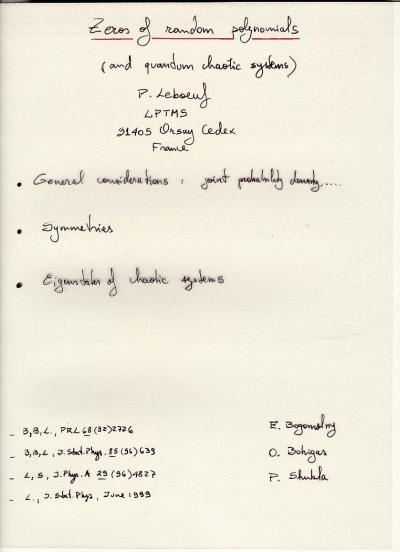 Zeros of random polynomials
(and quantum chaotic systems)
P. Leboeuf
LPTMS
91405 Orsay Cedex
France
• General considerations : joint probability density,....
• Symmetries
• Eigenstates of chaotic systems
– B,B,L., PRL 68 (92) 2726
– B,B,L, J.Stat.Phys. 85 (96) 639
– L, S, J.Phys. A 29 (96) 4827
– L., J.Stat.Phys, June 1999
E. Bogomolny
O. Bohigas
P. Shukla